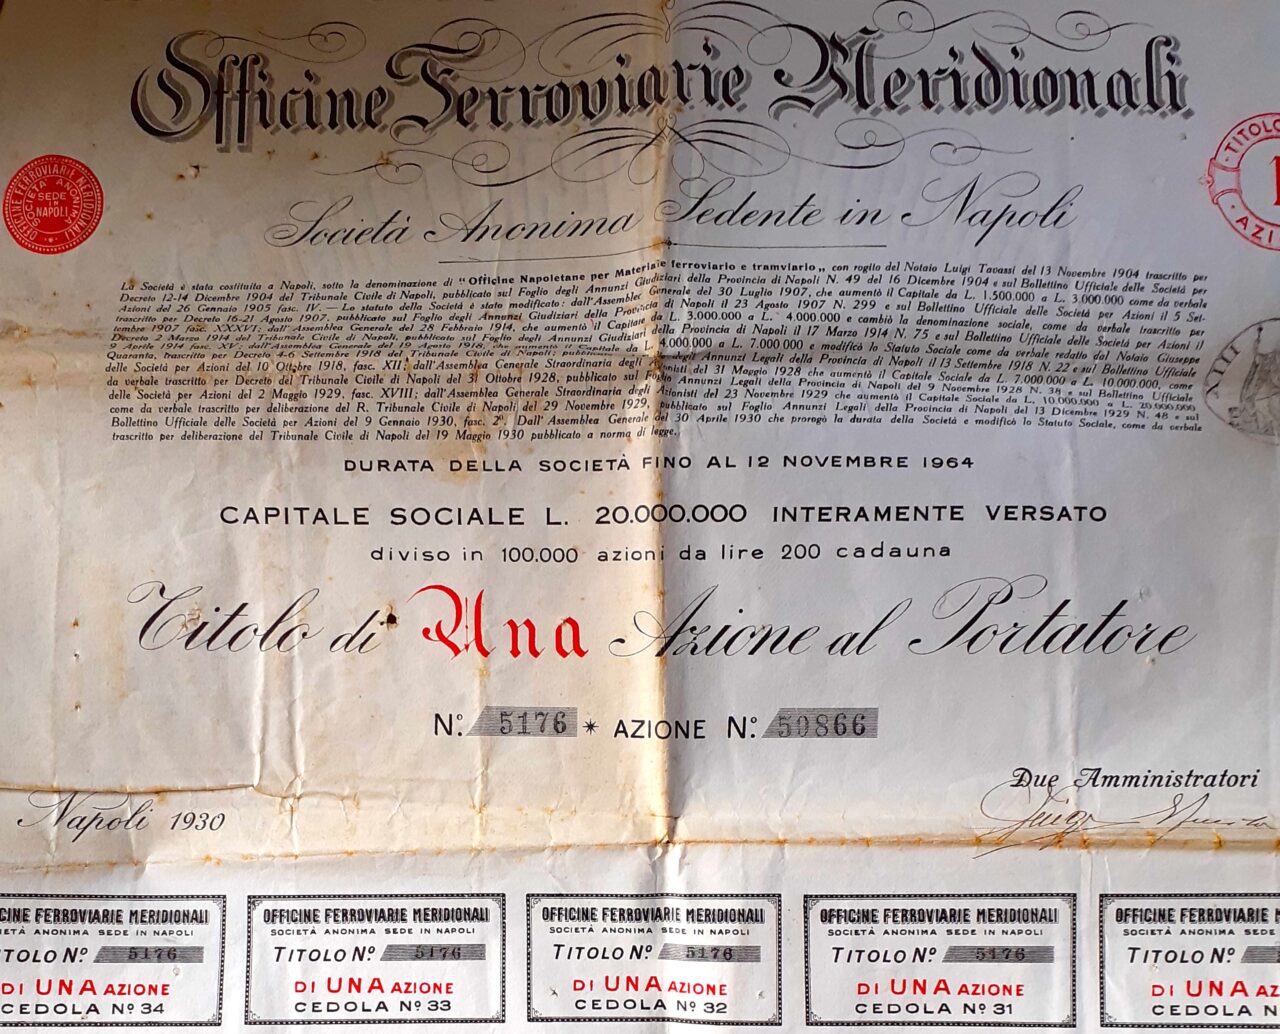 Officine Ferroviarie Meridionali
OFFICINE FERROVIARIE MERIDIONALI
SOCIETÀ ANONIMA
SEDE
IN
NAPOLI
TITOLO
1
AZI
Società Anonima Sedente in Napoli
La Società è stata costituita a Napoli, sotto la denominazione di "Officine Napoletane per Materiale ferroviario e tramviario„ con rogito del Notaio Luigi Tavassi del 13 Novembre 1904 trascritto per
Decreto 12-14 Dicembre 1904 del Tribunale Civile di Napoli, pubblicato sul Foglio degli Annunzi Giudiziari della Provincia di Napoli N. 49 del 16 Dicembre 1904 e sul Bollettino Ufficiale delle Società per
Azioni del 26 Gennaio 1905 fasc. IV.— Lo statuto della Società è stato modificato: dall'Assemblea Generale del 30 Luglio 1907, che aumentò il Capitale da L. 1.500.000 a L. 3.000.000 come da verbale
trascritto per Decreto 16-21 Agosto 1907, pubblicato sul Foglio degli Annunzi Giudiziari della Provincia di Napoli il 23 Agosto 1907 N. 299 e sul Bollettino Ufficiale delle Società per Azioni il 5 Set-
tembre 1907 fasc. XXXVI; dall'Assemblea Generale del 28 Febbraio 1914, che aumentò il Capitale da L. 3.000.000 a L. 4.000.000 e cambiò la denominazione sociale, come da verbale trascritto per
Decreto 2 Marzo 1914 del Tribunale Civile di Napoli, pubblicato sul Foglio degli Annunzi Giudiziari della Provincia di Napoli il 17 Marzo 1914 N. 75 e sul Bollettino Ufficiale delle Società per Azioni il
9 Aprile 1914 fasc. XV; dall'Assemblea Generale del 19 Agosto 1918, che aumentò il Capitale da L. 4.000.000 a L. 7.000.000 e modificò lo Statuto Sociale come da verbale redatto dal Notaio Giuseppe
Quaranta, trascritto per Decreto 4-6 Settembre 1918 del Tribunale Civile di Napoli; degli Annunzi Legali della Provincia di Napoli il 13 Settembre 1918 N. 22 e sul Bollettino Ufficiale
delle Società per Azioni del 10 Ottobre 1918, fasc. XII; dall'Assemblea Generale Straordinaria degli Azionisti del 31 Maggio 1928 che aumentò il Capitale Sociale da L. 7.000.000 a L. 10.000.000, come
da verbale trascritto per Decreto del Tribunale Civile di Napoli del 31 Ottobre 1928, pubblicato sul Foglio Annunzi Legali della Provincia di Napoli del 9 Novembre 1928 N. 38 e sul Bollettino Ufficiale
delle Società per Azioni del 2 Maggio 1929, fasc. XVIII; dall'Assemblea Generale Straordinaria degli Azionisti del 23 Novembre 1929 che aumentò il Capitale Sociale da L. 10.000.000 a L. 20.000.000
come da verbale trascritto per deliberazione del R. Tribunale Civile di Napoli del 29 Novembre 1929, pubblicato sul Foglio Annunzi Legali della Provincia di Napoli del 13 Dicembre 1929 N. 48 e sul
Bollettino Ufficiale delle Società per Azioni del 9 Gennaio 1930, fasc. 2º. Dall'Assemblea Generale del 30 Aprile 1930 che prorogò la durata della Società e modificò lo Statuto Sociale, come da verbale
trascritto per deliberazione del Tribunale Civile di Napoli del 19 Maggio 1930 pubblicato a norma di legge.
VIII
DURATA DELLA SOCIETÀ FINO AL 12 NOVEMBRE 1964
CAPITALE SOCIALE L. 20.000.000 INTERAMENTE VERSATO
diviso in 100.000 azioni da lire 200 cadauna
Titolo di Una Azione al Portatore
Nº. 5176 * AZIONE Nº. 50866
Due Amministratori
Napoli 1930
CINE FERROVIARIE MERIDIONALI
OCIETÀ ANONIMA SEDE IN NAPOLI
TOLO Nº 5176
DI UNA AZIONE
CEDOLA Nº 34
OFFICINE FERROVIARIE MERIDIONALI
SOCIETÀ ANONIMA SEDE IN NAPOLI
TITOLO Nº 5176
DI UNA AZIONE
CEDOLA Nº 33
OFFICINE FERROVIARIE MERIDIONALI
SOCIETÀ ANONIMA SEDE IN NAPOLI
TITOLO Nº 5176
DI UNA AZIONE
CEDOLA Nº 32
OFFICINE FERROVIARIE MERIDIONALI
SOCIETÀ ANONIMA SEDE IN NAPOLI
TITOLO Nº 5176
DI UNA AZIONE
CEDOLA Nº 31
OFFICINE FERROVIARIE M
SOCIETÀ ANONIMA SEDE
TITOLO Nº
DI UNA A
CEDOLA N